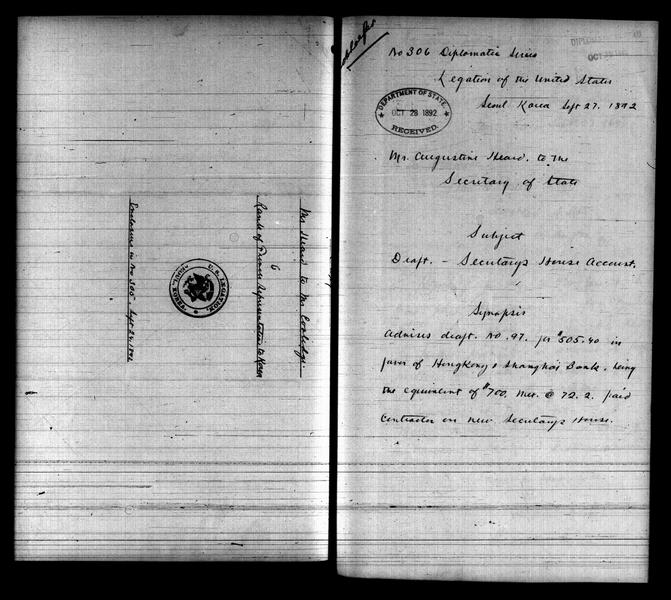 Mr Heard to Mr Coolidge.
6
Rank of French Representative to Korea
Enclosure in No 305 Sept 24, 1892
U.S. LEGATION.
SEOUL, KOREA.
No 306 Diplomatic Series
OCT 28
Legation of the United States
Seoul Korea Sept 27. 1892
DEPARTMENT OF STATE.
OCT 28 1892
RECEIVED.
Mr. Augustine Heard. to the
Secretary of State
Subject
Draft. - Secretary's House Account.
Synopsis
Advises draft. No. 97. for $505.40 in
favor of HongKong & Shanghai Bank. being
the equivalent of $700. Mex. @ 72.2. paid
Contractor on new Secretary's House.